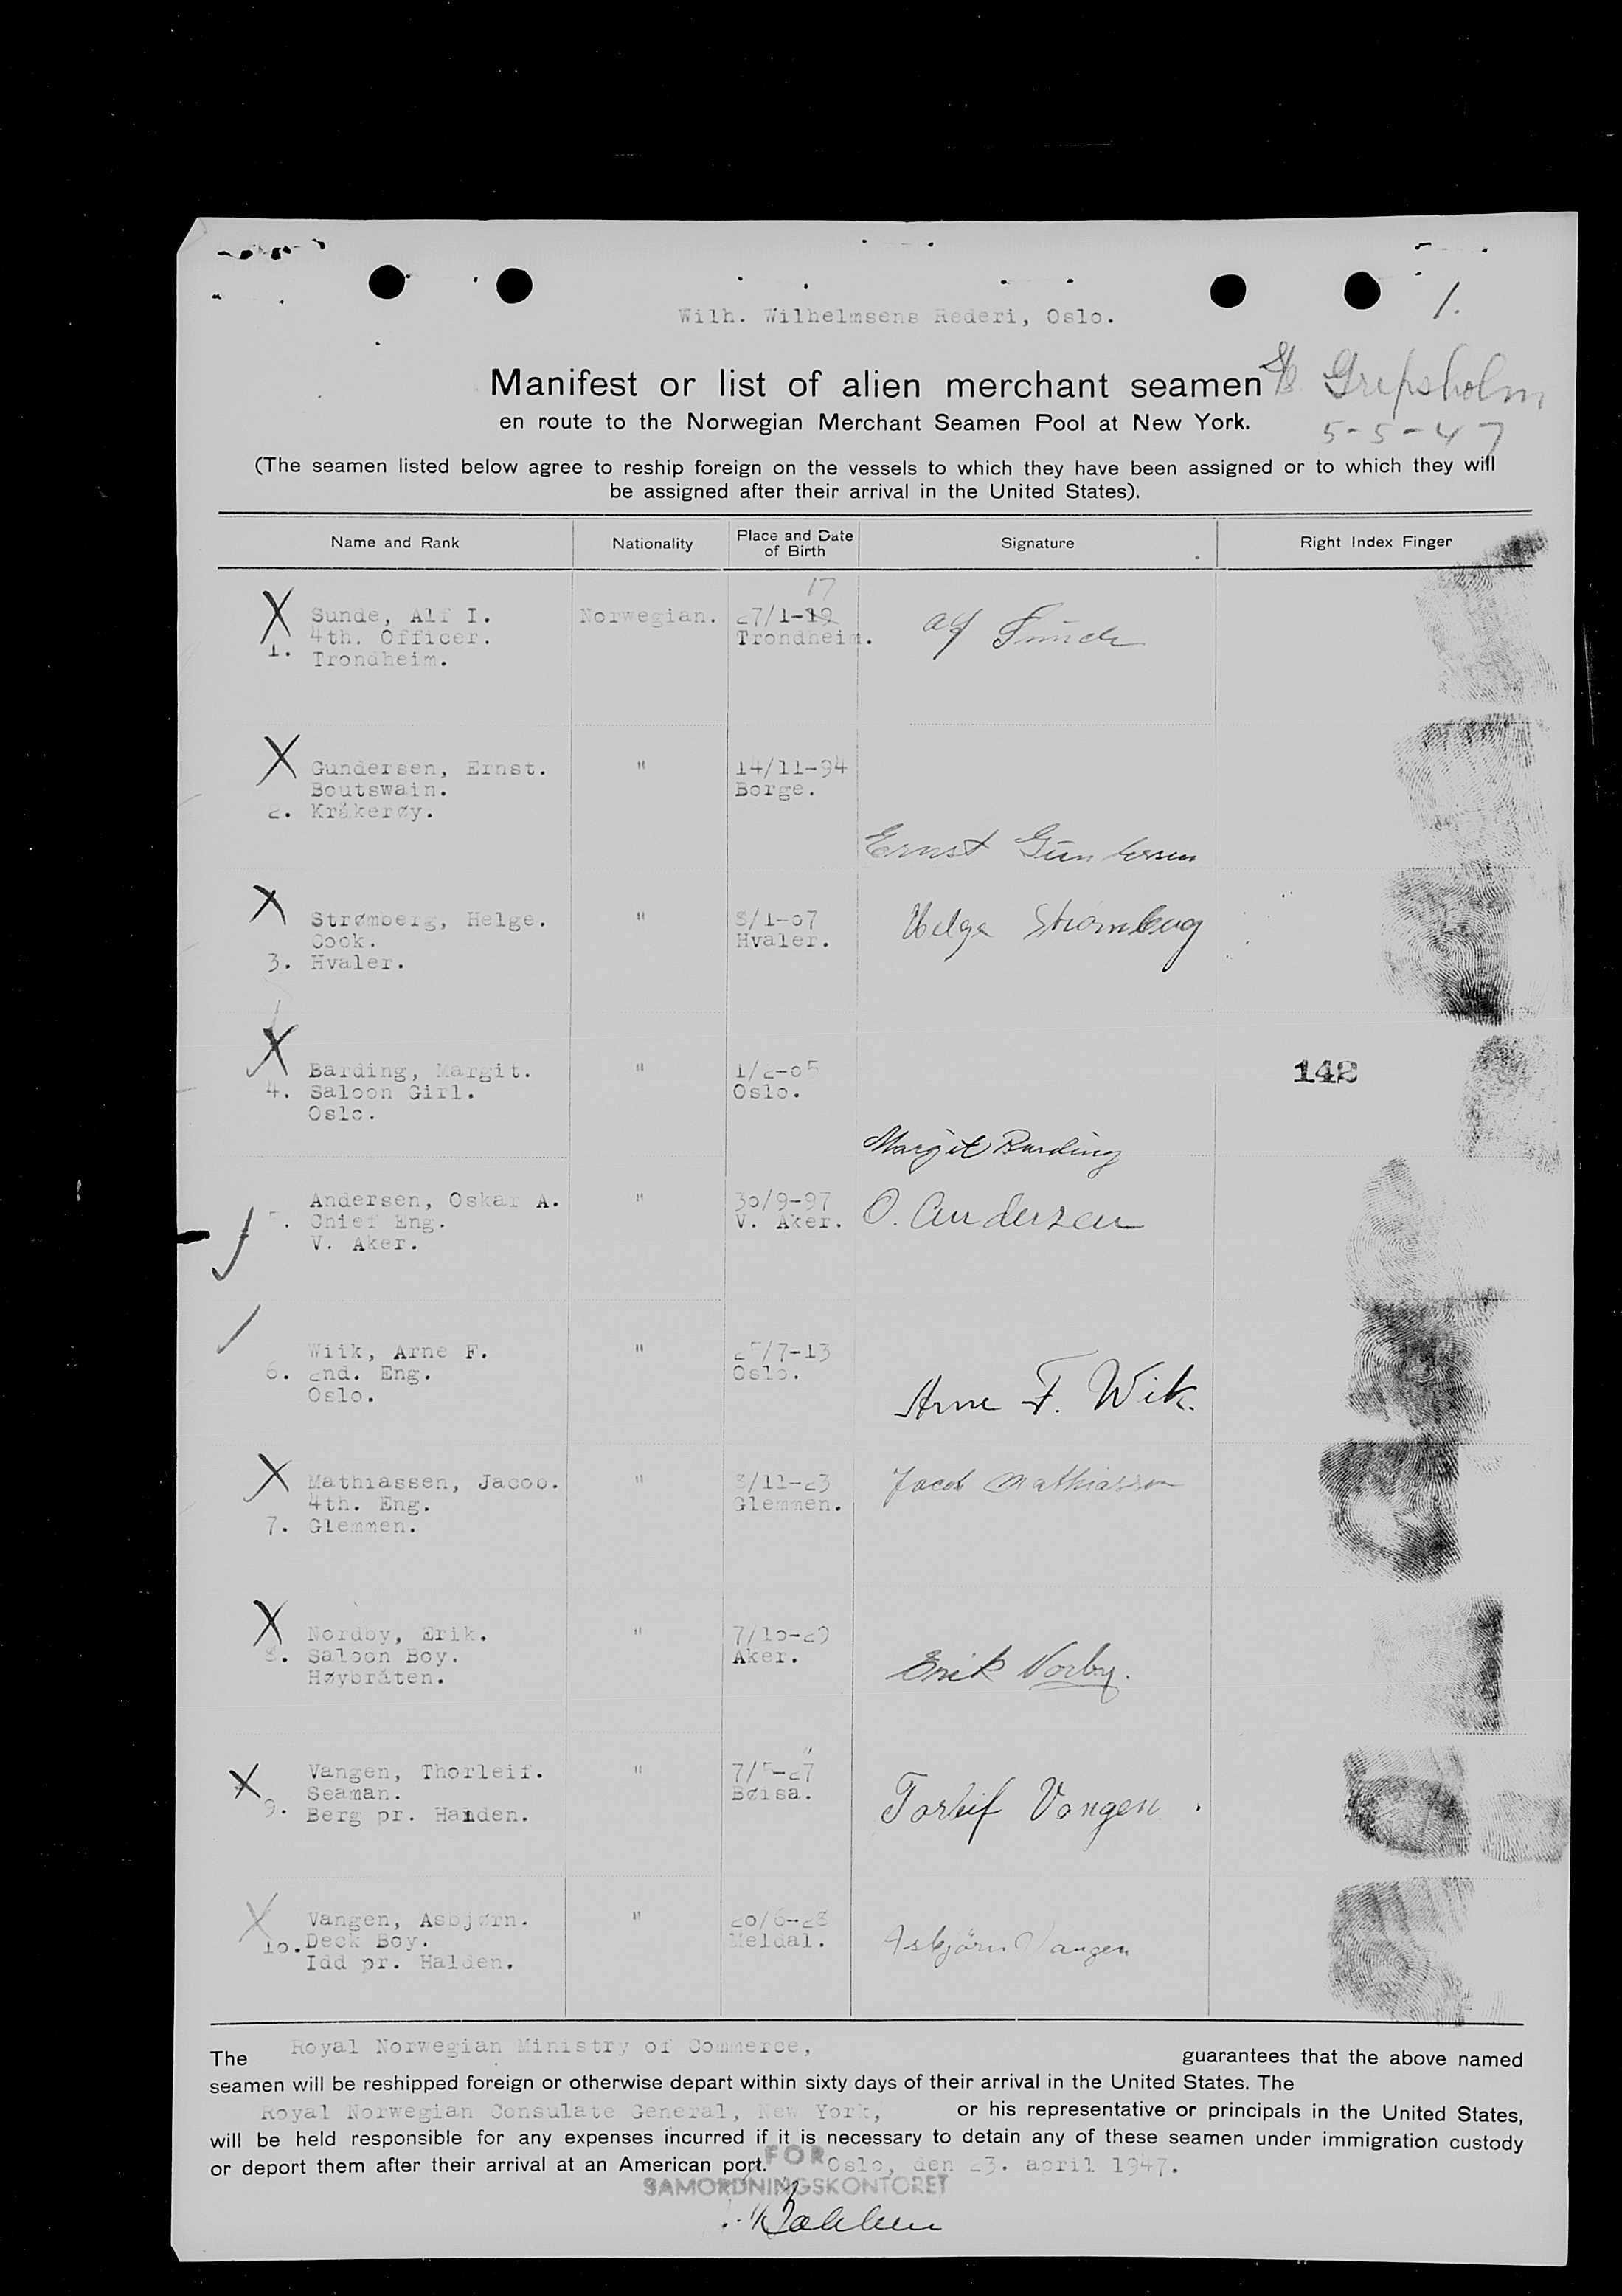 1.
Wilh. Wilhelmsens Rederi, Oslo.
Manifest or list of alien merchant seamen
Gripsholm
en route to the Norwegian Merchant Seamen Pool at New York.
5-5-47
(The seamen listed below agree to reship foreign on the vessels to which they have been assigned or to which they will
be assigned after their arrival in the United States).
Name and Rank Nationality Place and Date of Birth Signature Right Index Finger
17
X Sunde, Alf I. Norwegian. 27/1-19 Alf Sunde
4th. Officer. Trondheim.
1. Trondheim.
X Gundersen, Ernst. " 14/11-94
Boutswain. Borge.
2. Kråkerøy.
Ernst Gundersen
X Strømberg, Helge. " 8/1-07 Helge Strømberg
Cook. Hvaler.
3. Hvaler.
X Barding, Margit. " 1/2-05 142
4. Saloon Girl. Oslo.
Oslo.
Margit Barding
Andersen, Oskar A. " 30/9-97 O. Andersen
Chief Eng. V. Aker.
V. Aker.
Wiik, Arne F. " /7-13
6. 2nd. Eng. Oslo.
Oslo. Arne F. Wik.
X Mathiassen, Jacob. " 8/11-23 Jacob Mathiassen
4th. Eng. Glemmen.
7. Glemmen.
X Nordby, Erik. " 7/10-29
8. Saloon Boy. Aker. Erik Norby.
Høybråten.
X Vangen, Thorleif. " 7/5-27
Seaman. Bøisa. Torleif Vangen.
9. Berg pr. Halden.
X Vangen, Asbjørn. " 20/6-28
10. Deck Boy. Meldal. Asbjørn Vangen
Idd pr. Halden.
The Royal Norwegian Ministry of Commerce, guarantees that the above named
seamen will be reshipped foreign or otherwise depart within sixty days of their arrival in the United States. The
Royal Norwegian Consulate General, New York, or his representative or principals in the United States,
will be held responsible for any expenses incurred if it is necessary to detain any of these seamen under immigration custody
or deport them after their arrival at an American port. FOR Oslo, den 23. april 1947.
SAMORDNINGSKONTORET